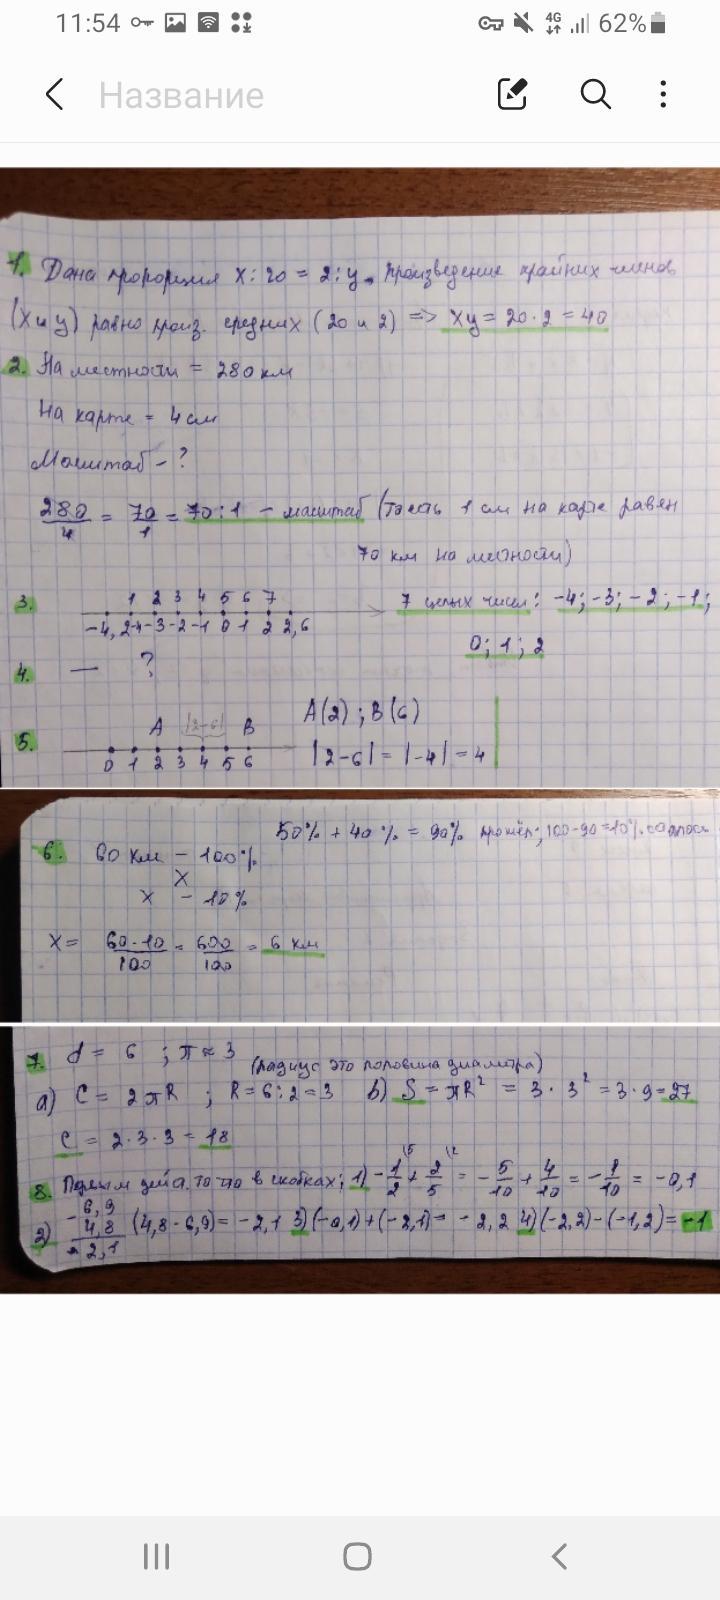 11:54
4G
62%
Название
1. Дана пропорция x : 20 = 2 : y. Произведение крайних членов
(x и y) равно произ. средних (20 и 2) => xy = 20 · 2 = 40
2. На местности = 280 км
На карте = 4 см
Масштаб - ?
280/4 = 70/1 = 70:1 - масштаб (то есть 1 см на карте равен
70 км на местности)
3. 1 2 3 4 5 6 7
-4,2 -4 -3 -2 -1 0 1 2 2,6
7 целых чисел: -4; -3; -2; -1;
0; 1; 2
4. — ?
5. A |2-6| B
0 1 2 3 4 5 6
A(2) ; B(6)
|2-6| = |-4| = 4
50% + 40% = 90% прошёл; 100-90=10% осталось
6. 60 км - 100%
x
x - 10%
x = 60·10/100 = 600/100 = 6 км
7. d = 6 ; π ≈ 3
(радиус это половина диаметра)
a) C = 2πR ; R = 6:2 = 3 b) S = πR² = 3 · 3² = 3 · 9 = 27
C = 2 · 3 · 3 = 18
8. то что в скобках; 1) -1/2 \5 + 2/5 \2 = -5/10 + 4/10 = -1/10 = -0,1
2) -6,9 4,8 -2,1 (4,8 - 6,9) = -2,1 3) (-0,1) + (-2,1) = -2,2 4) (-2,2) - (-1,2) = -1